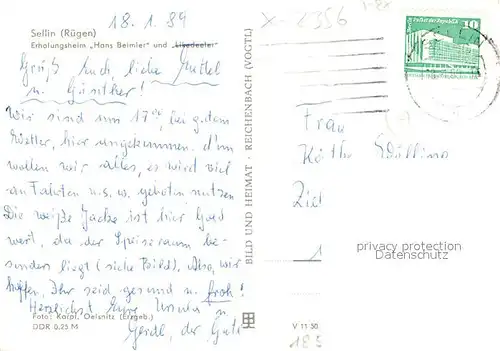 18. 1. 89
Sellin (Rügen)
Erholungsheim „Hans Beimler" und „Likedeeler"
Grüß Euch, liebe
u. Günther!
Wir sind um 17 bei gutem
Wetter, hier angekommen.
wollen wir alles, es wird viel
an Fahrten u.s.w. geboten nutzen
Die weiße Jacke ist hier Gold
wert, da der Speiseraum be-
sonders liegt (siehe Bild). Also, wir
hoffen, Ihr seid gesund u. froh!
Herzlichst Eure Ursula u.
Gerdl, der Gute
Foto: Karpf, Oelsnitz (Erzgeb.)
DDR 0,25 M
BILD UND HEIMAT · REICHENBACH (VOGTL)
V 11 50
X-2356
10
Frau
Käthe
privacy protection
Datenschutz
1